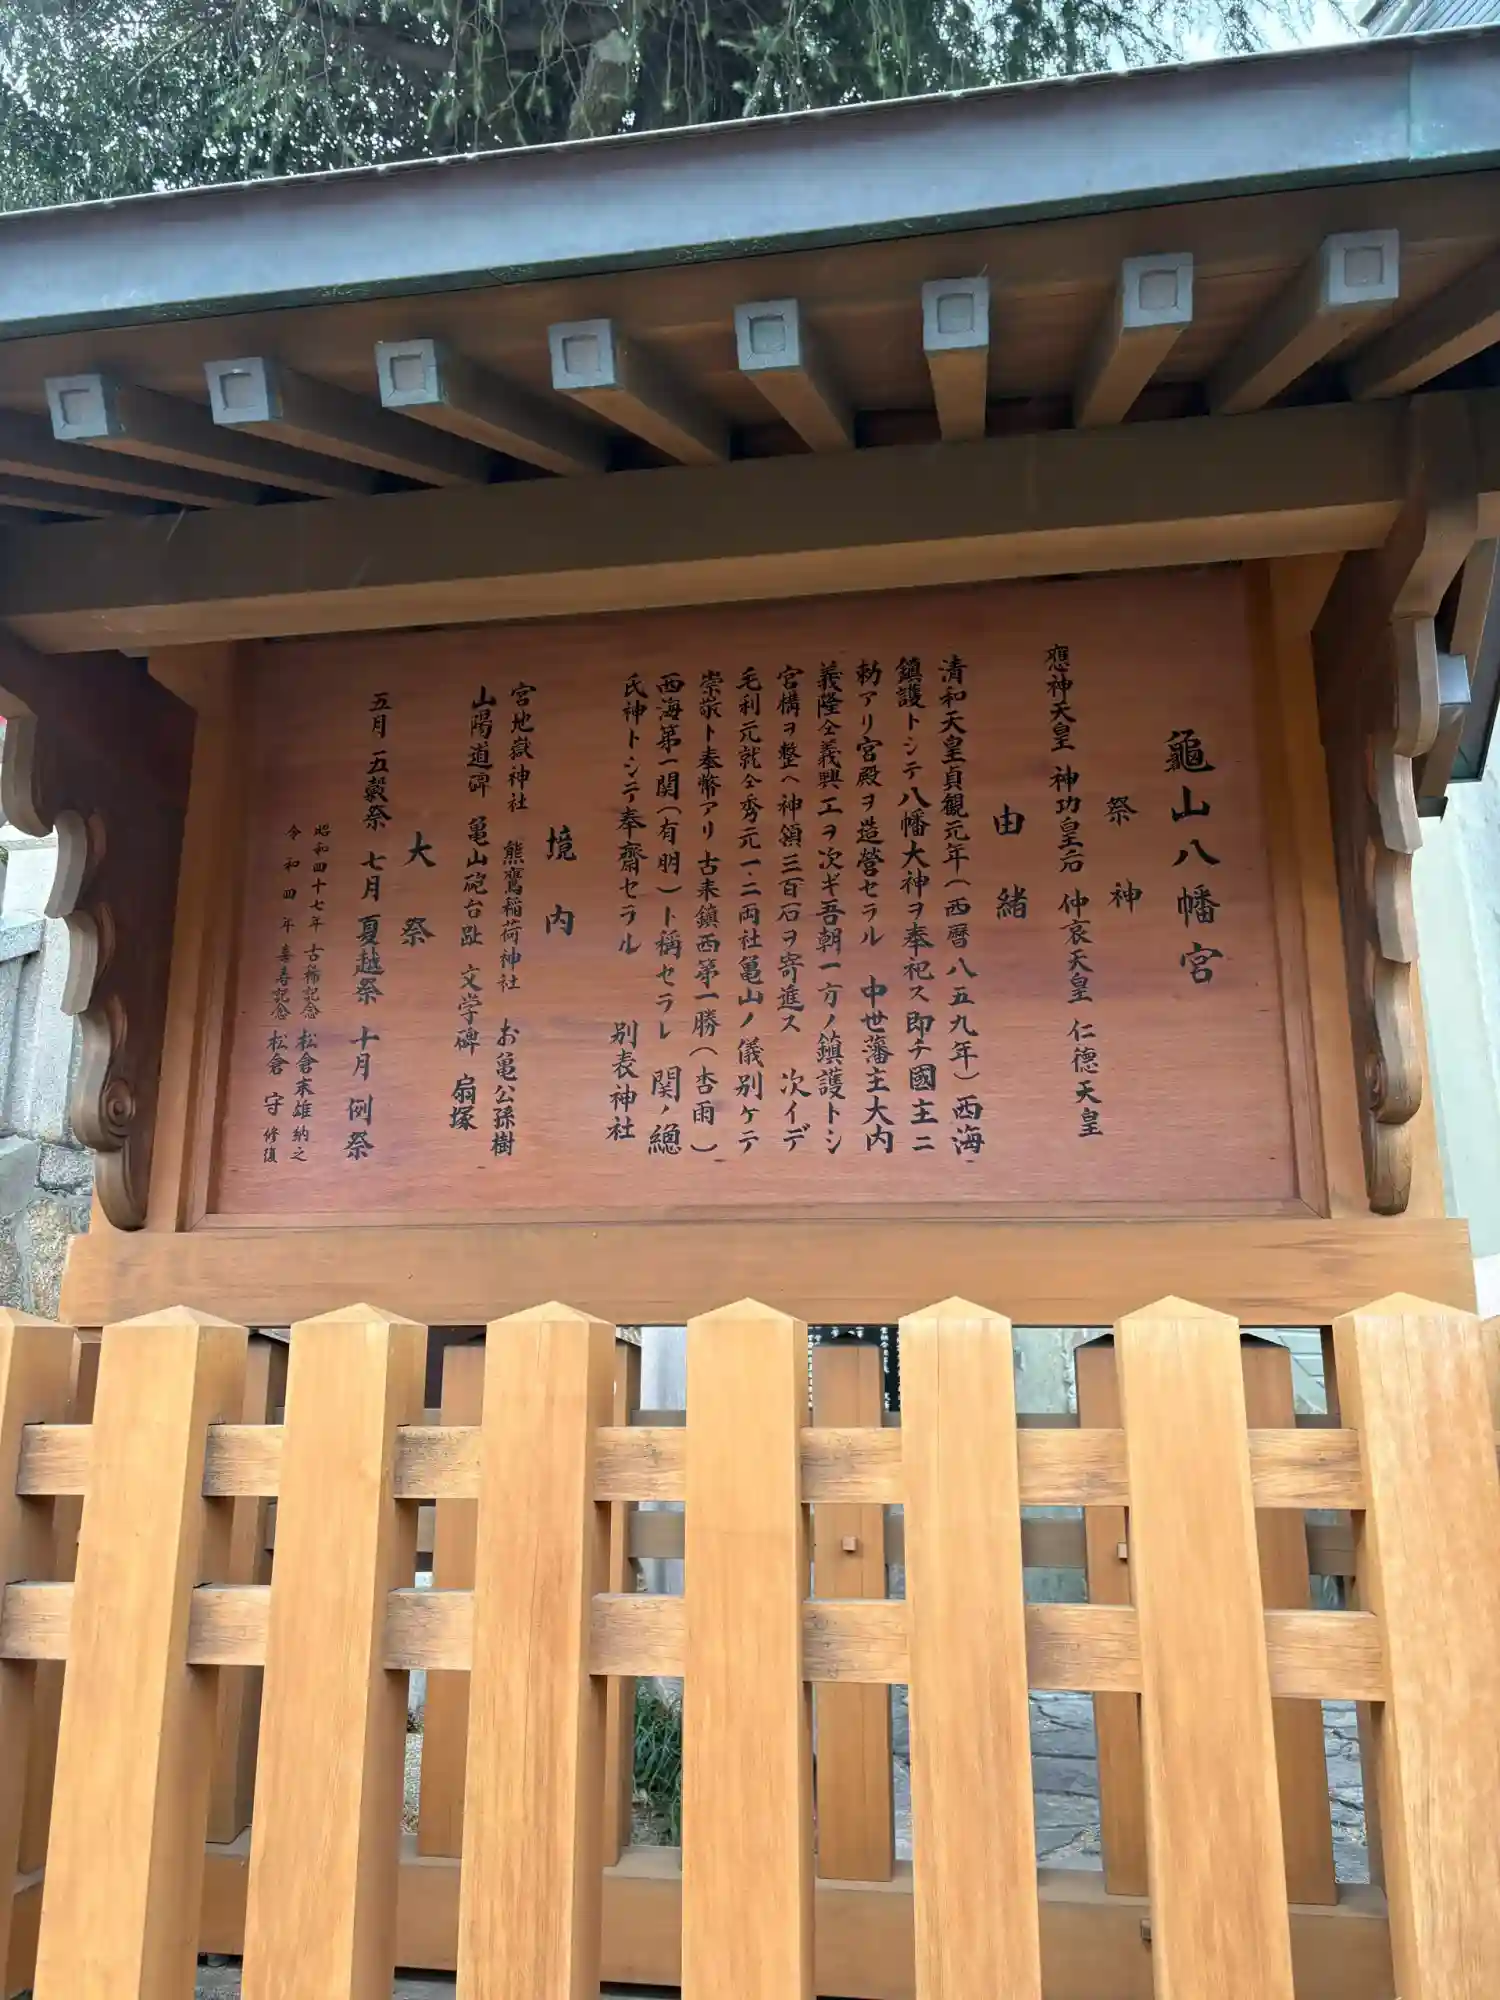 龜山八幡宮
祭神
應神天皇 神功皇后 仲哀天皇 仁德天皇
由緒
清和天皇貞観元年(西暦八五九年)西海
鎮護トシテ八幡大神ヲ奉祀ス即チ國主ニ
勅アリ宮殿ヲ造営セラル 中世藩主大内
義隆仝義興工ヲ次ギ吾朝一方ノ鎮護トシ
宮構ヲ整ヘ神領三百石ヲ寄進ス 次イデ
毛利元就仝秀元一・二両社亀山ノ儀別ケテ
崇敬ト奉幣アリ古来鎮西第一勝(杏雨)
西海第一関(有明)ト稱セラレ 関ノ總
氏神トシテ奉齋セラル 別表神社
境内
宮地嶽神社 熊鷹稲荷神社 お亀公孫樹
山陽道碑 亀山砲台趾 文学碑 扇塚
大祭
五月 五穀祭 七月 夏越祭 十月 例祭
昭和四十七年 古稀記念 松倉末雄 納之
令和四年 喜寿記念 松倉 守 修復